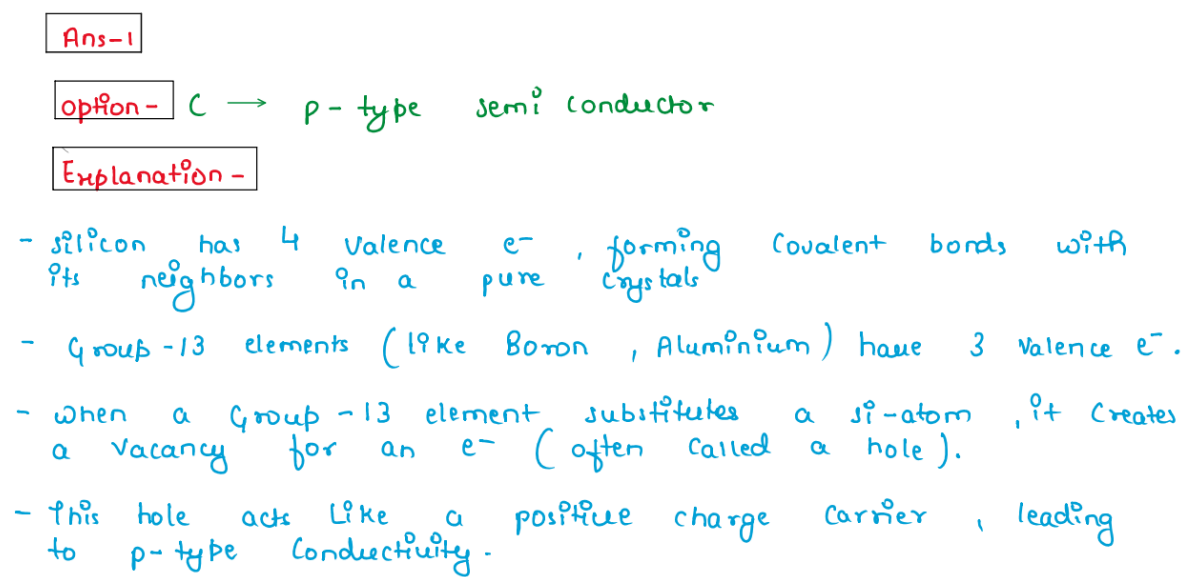 Ans-1
option- C → p-type semi conductor
Explanation -
- silicon has 4 valence e⁻, forming covalent bonds with
its neighbors in a pure crystals
- Group-13 elements (like Boron, Aluminium) have 3 valence e⁻.
- when a Group-13 element substitutes a si-atom, it creates
a vacancy for an e⁻ (often called a hole).
- This hole acts like a positive charge carrier, leading
to p-type conductivity.